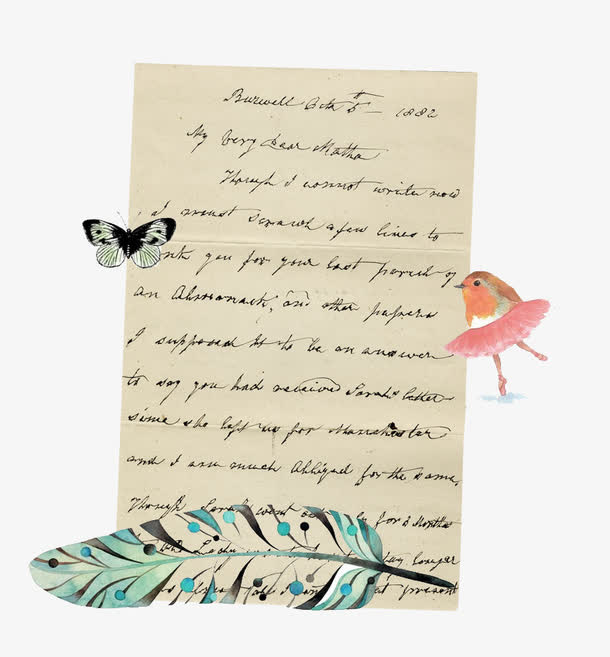 Burwell Octr 5th — 1882
My very dear Martha
Though I cannot write now
I must scrawl a few lines to
you for your last parcel of
an Almanack, and other papers
I supposed it to be an answer
to say you had received Sarah's letter
since she left us for Manchester
and I am much obliged for the same,
Though Sarah went for 3 Months
longer
at present